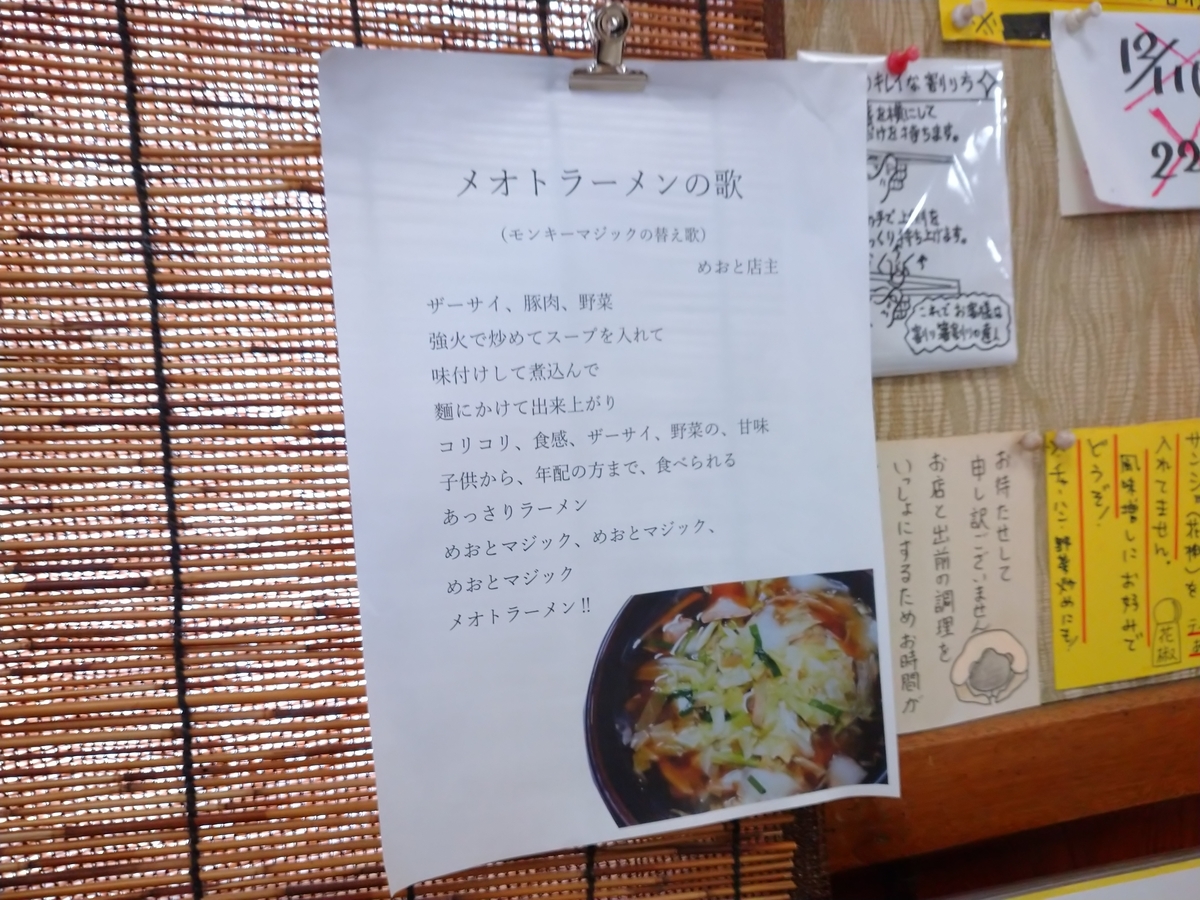 メオトラーメンの歌
（モンキーマジックの替え歌）
めおと店主
ザーサイ、豚肉、野菜
強火で炒めてスープを入れて
味付けして煮込んで
麺にかけて出来上がり
コリコリ、食感、ザーサイ、野菜の、甘味
子供から、年配の方まで、食べられる
あっさりラーメン
めおとマジック、めおとマジック、
めおとマジック
メオトラーメン!!
キレイな割り方
を横にして
を持ちます。
持ち上げます。
これでお客様は
割り箸割りの達人
12/11
22
お待たせして
申し訳ございません
お店と出前の調理を
いっしょにするためお時間が
入れてません。
風味増しにお好みで
どうぞ！
花椒